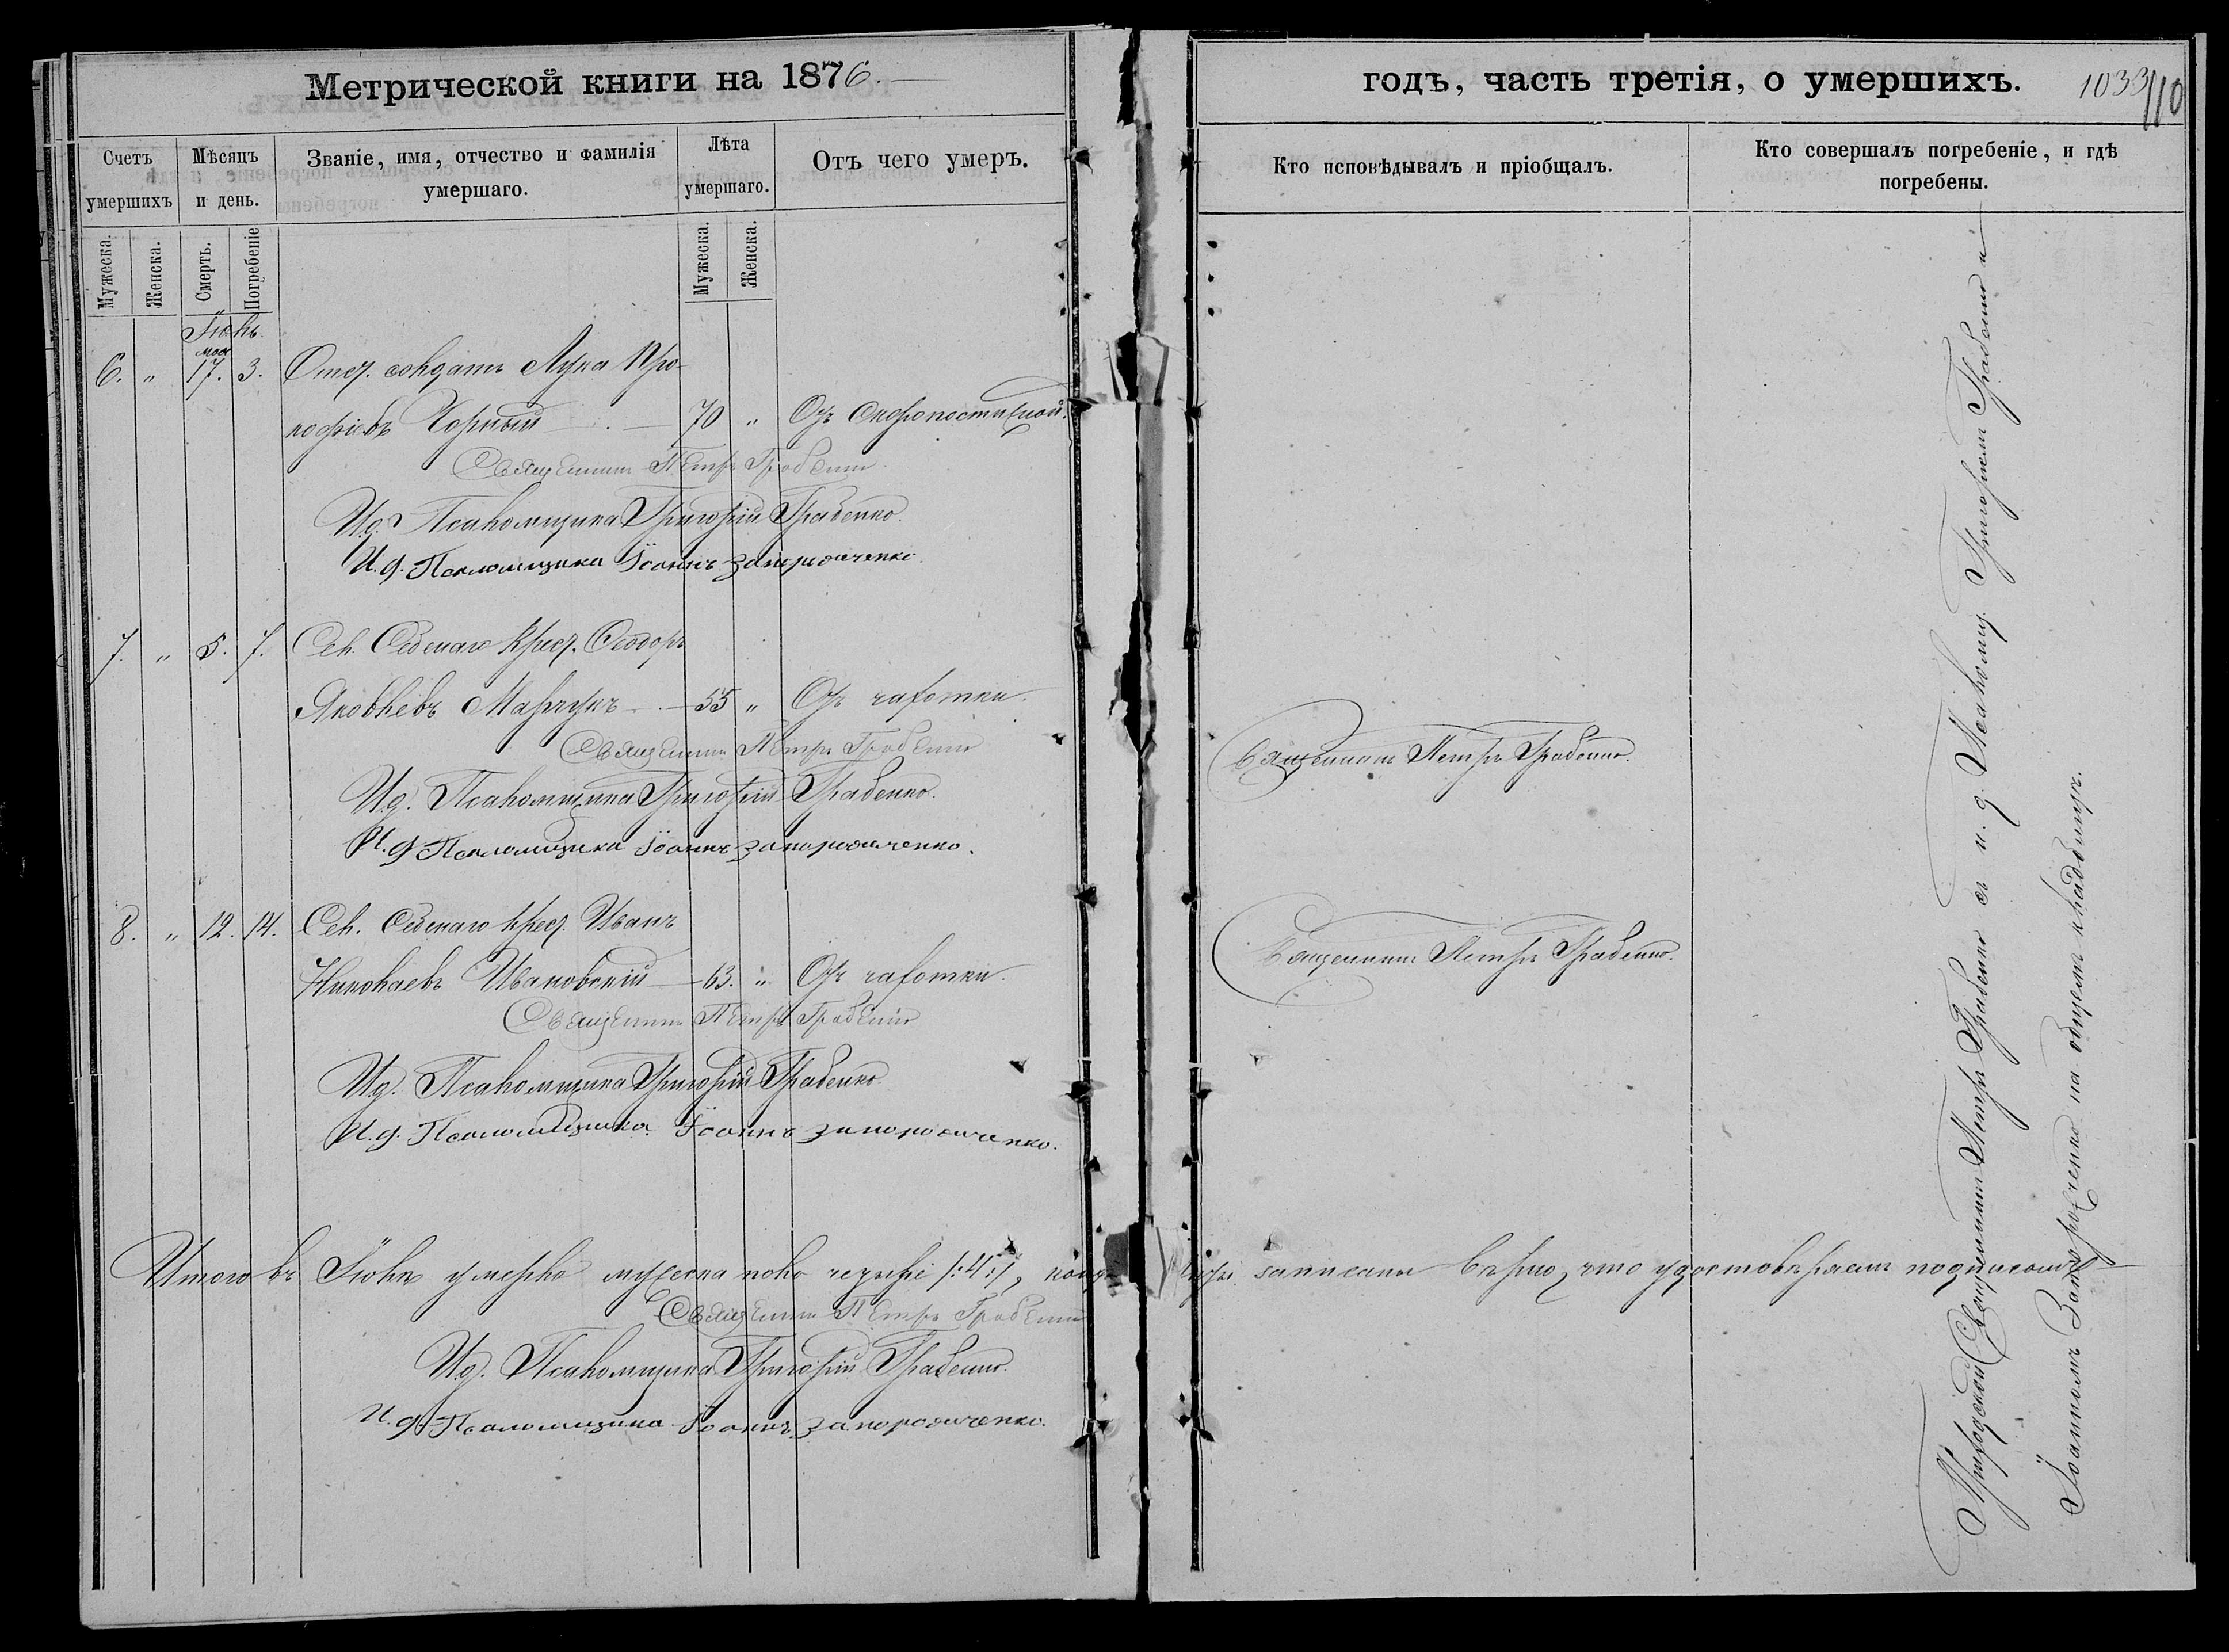 Метрической книги на 1876.
годъ, часть третія, о умершихъ.
1033
110
Счетъ умершихъ
Мѣсяцъ и день.
Званіе, имя, отчество и фамилія умершаго.
Лѣта умершаго.
Отъ чего умеръ.
Кто исповѣдывалъ и пріобщалъ.
Кто совершалъ погребеніе, и гдѣ погребены.
Мужеска.
Женска.
Смерть.
Погребеніе
Мужеска.
Женска.
Іюнь.
6. " 17. 3. Отст. солдатъ Лука Про-
кофіевъ Чорный 70 " Отъ скоропостижной.
Священникъ Петръ Грабенко
И.д. Псаломщика Григорій Грабенко.
И.д. Псаломщика Іоаннъ Запорожченко.
7. " 5. 7. Сел. Крест. Ѳеодоръ
Яковлевъ Марчукъ 55 " Отъ чахотки.
Священникъ Петръ Грабенко
Священникъ Петръ Грабенко.
И.д. Псаломщика Григорій Грабенко.
И.д. Псаломщика Іоаннъ Запорожченко.
8. " 12. 14. Сел. Крест. Иванъ
Николаевъ Ивановскій 63. " Отъ чахотки.
Священникъ Петръ Грабенко.
Священникъ Петръ Грабенко
И.д. Псаломщика Григорій Грабенко.
И.д. Псаломщика Іоаннъ Запорожченко.
Итого въ Іюнѣ умерло мужеска пола четыре /:4:/, записаны вѣрно, что удостовѣряемъ подписомъ
Священникъ Петръ Грабенко
И.д. Псаломщика Григорій Грабенко.
И.д. Псаломщика Іоаннъ Запорожченко.
Приходской Священникъ Петръ Грабенко съ и. д. Псаломщ. Григоріемъ Грабенко и
Іоанномъ Запорожченко на общемъ кладбищѣ.